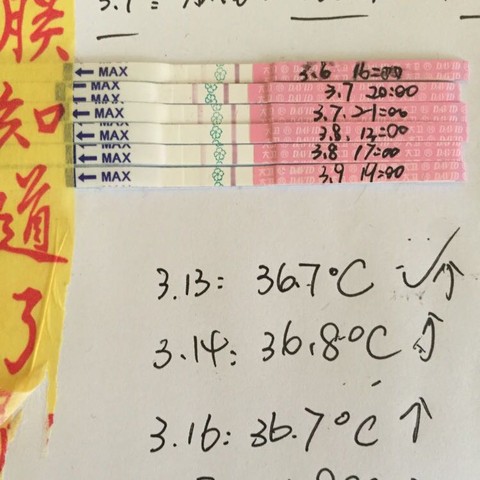 朕知道了
3.7:
MAX 3.6 16:00
MAX 3.7 20:00
MAX 3.7. 21:00
MAX 3.8. 12:00
MAX 3.8 17:00
MAX 3.9 19:00
3.13: 36.7°C ↑
3.14: 36.8°C ↑
3.16: 36.7°C ↑